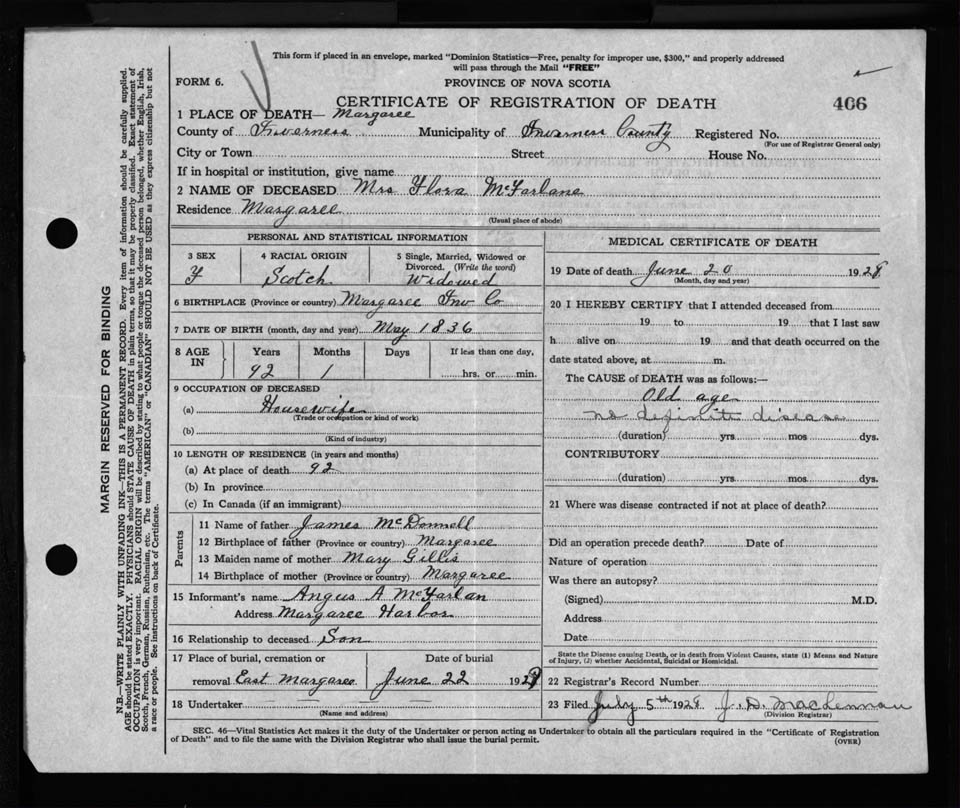 This form if placed in an envelope, marked "Dominion Statistics—Free, penalty for improper use, $300," and properly addressed
will pass through the Mail "FREE"
FORM 6.
PROVINCE OF NOVA SCOTIA
CERTIFICATE OF REGISTRATION OF DEATH
466
1 PLACE OF DEATH— Margaree
County of Inverness Municipality of Inverness County Registered No.
(For use of Registrar General only)
City or Town Street House No.
If in hospital or institution, give name
2 NAME OF DECEASED Mrs Flora McFarlane
Residence Margaree
(Usual place of abode)
PERSONAL AND STATISTICAL INFORMATION
3 SEX 4 RACIAL ORIGIN 5 Single, Married, Widowed or
Divorced. (Write the word)
F Scotch Widowed
6 BIRTHPLACE (Province or country) Margaree Inv Co
7 DATE OF BIRTH (month, day and year) May 1836
8 AGE IN Years Months Days If less than one day,
92 1 hrs. or min.
9 OCCUPATION OF DECEASED
(a) Housewife
(Trade or occupation or kind of work)
(b)
(Kind of industry)
10 LENGTH OF RESIDENCE (in years and months)
(a) At place of death 92
(b) In province
(c) In Canada (if an immigrant)
Parents
11 Name of father James McDonnell
12 Birthplace of father (Province or country) Margaree
13 Maiden name of mother Mary Gillis
14 Birthplace of mother (Province or country) Margaree
15 Informant's name Angus A McFarlan
Address Margaree Harbor
16 Relationship to deceased Son
17 Place of burial, cremation or Date of burial
removal East Margaree June 22 1928
18 Undertaker
(Name and address)
MEDICAL CERTIFICATE OF DEATH
19 Date of death June 20 1928
(Month, day and year)
20 I HEREBY CERTIFY that I attended deceased from
19 to 19 that I last saw
h alive on 19 and that death occurred on the
date stated above, at m.
The CAUSE of DEATH was as follows:—
Old age
no definite disease
(duration) yrs. mos dys.
CONTRIBUTORY
(duration) yrs. mos. dys.
21 Where was disease contracted if not at place of death?
Did an operation precede death? Date of
Nature of operation
Was there an autopsy?
(Signed) M.D.
Address
Date
State the Disease causing Death, or in death from Violent Causes, state (1) Means and Nature
of Injury, (2) whether Accidental, Suicidal or Homicidal.
22 Registrar's Record Number
23 Filed July 5th 1928 J. D. MacLennan
(Division Registrar)
SEC. 46—Vital Statistics Act makes it the duty of the Undertaker or person acting as Undertaker to obtain all the particulars required in the "Certificate of Registration
of Death" and to file the same with the Division Registrar who shall issue the burial permit.
(OVER)
MARGIN RESERVED FOR BINDING
N.B.—WRITE PLAINLY WITH UNFADING INK—THIS IS A PERMANENT RECORD. Every item of information should be carefully supplied.
AGE should be stated EXACTLY. PHYSICIANS should STATE CAUSE OF DEATH in plain terms, so that it may be properly classified. Exact statement of
OCCUPATION is very important. RACIAL ORIGIN will be described by stating to what people or tongue the deceased person belonged, whether English, Irish,
Scotch, French, German, Russian, Ruthenian, etc. The terms "AMERICAN" or "CANADIAN" SHOULD NOT BE USED as they express citizenship but not
a race or people. See instructions on back of Certificate.